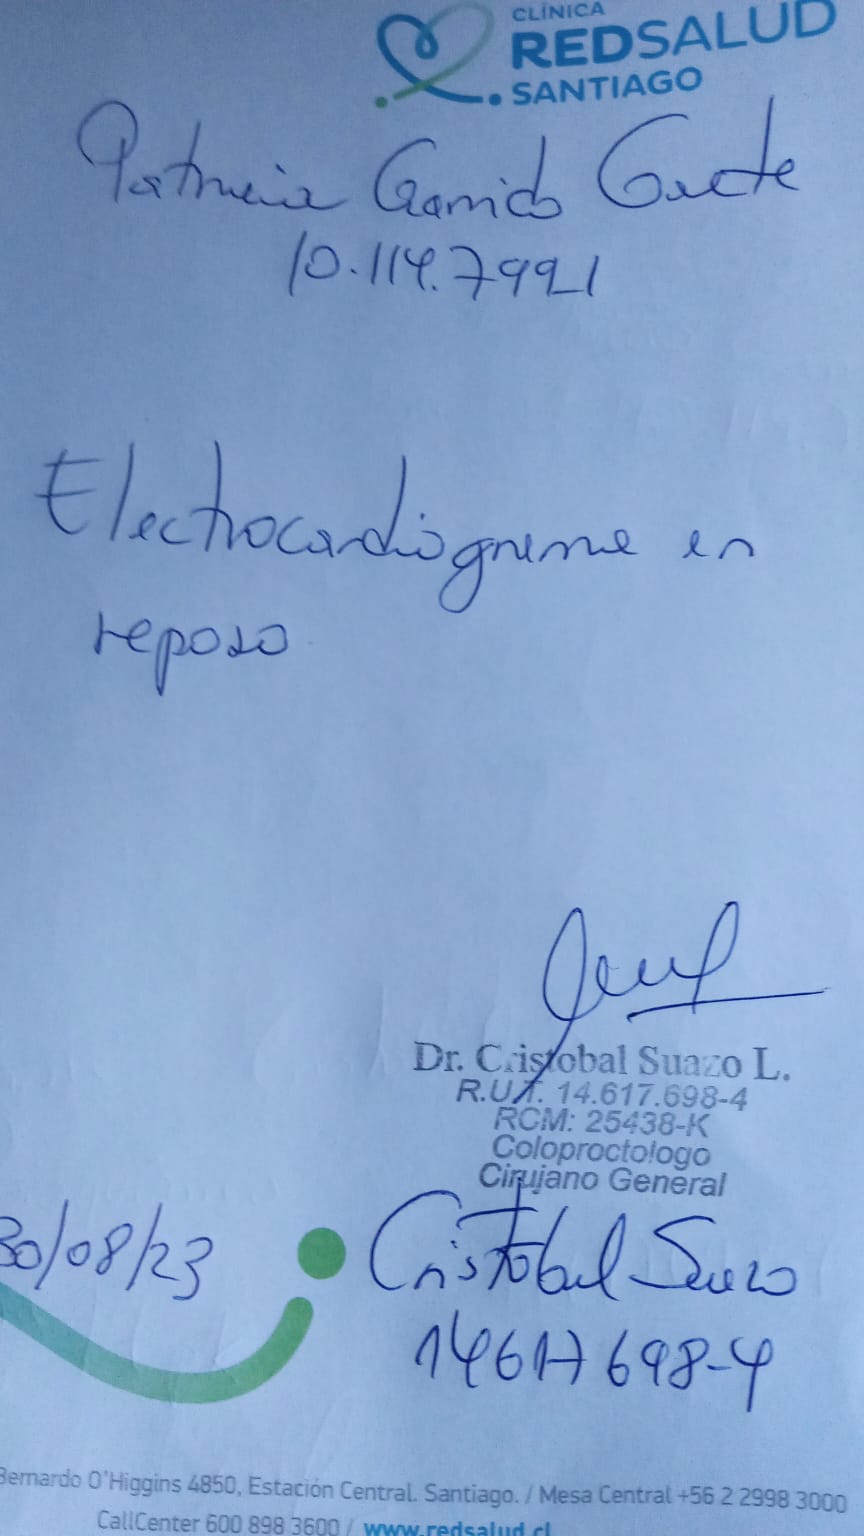 CLÍNICA
REDSALUD
SANTIAGO
Patricia Garrido Gaete
10.114.799-1
Electrocardiograma en
reposo
Dr. Cristobal Suazo L.
R.U.T. 14.617.698-4
RCM: 25438-K
Coloproctologo
Cirujano General
30/08/23
Cristobal Suazo
14617698-4
Bernardo O'Higgins 4850, Estación Central. Santiago. / Mesa Central +56 2 2998 3000
CallCenter 600 898 3600 / www.redsalud.cl